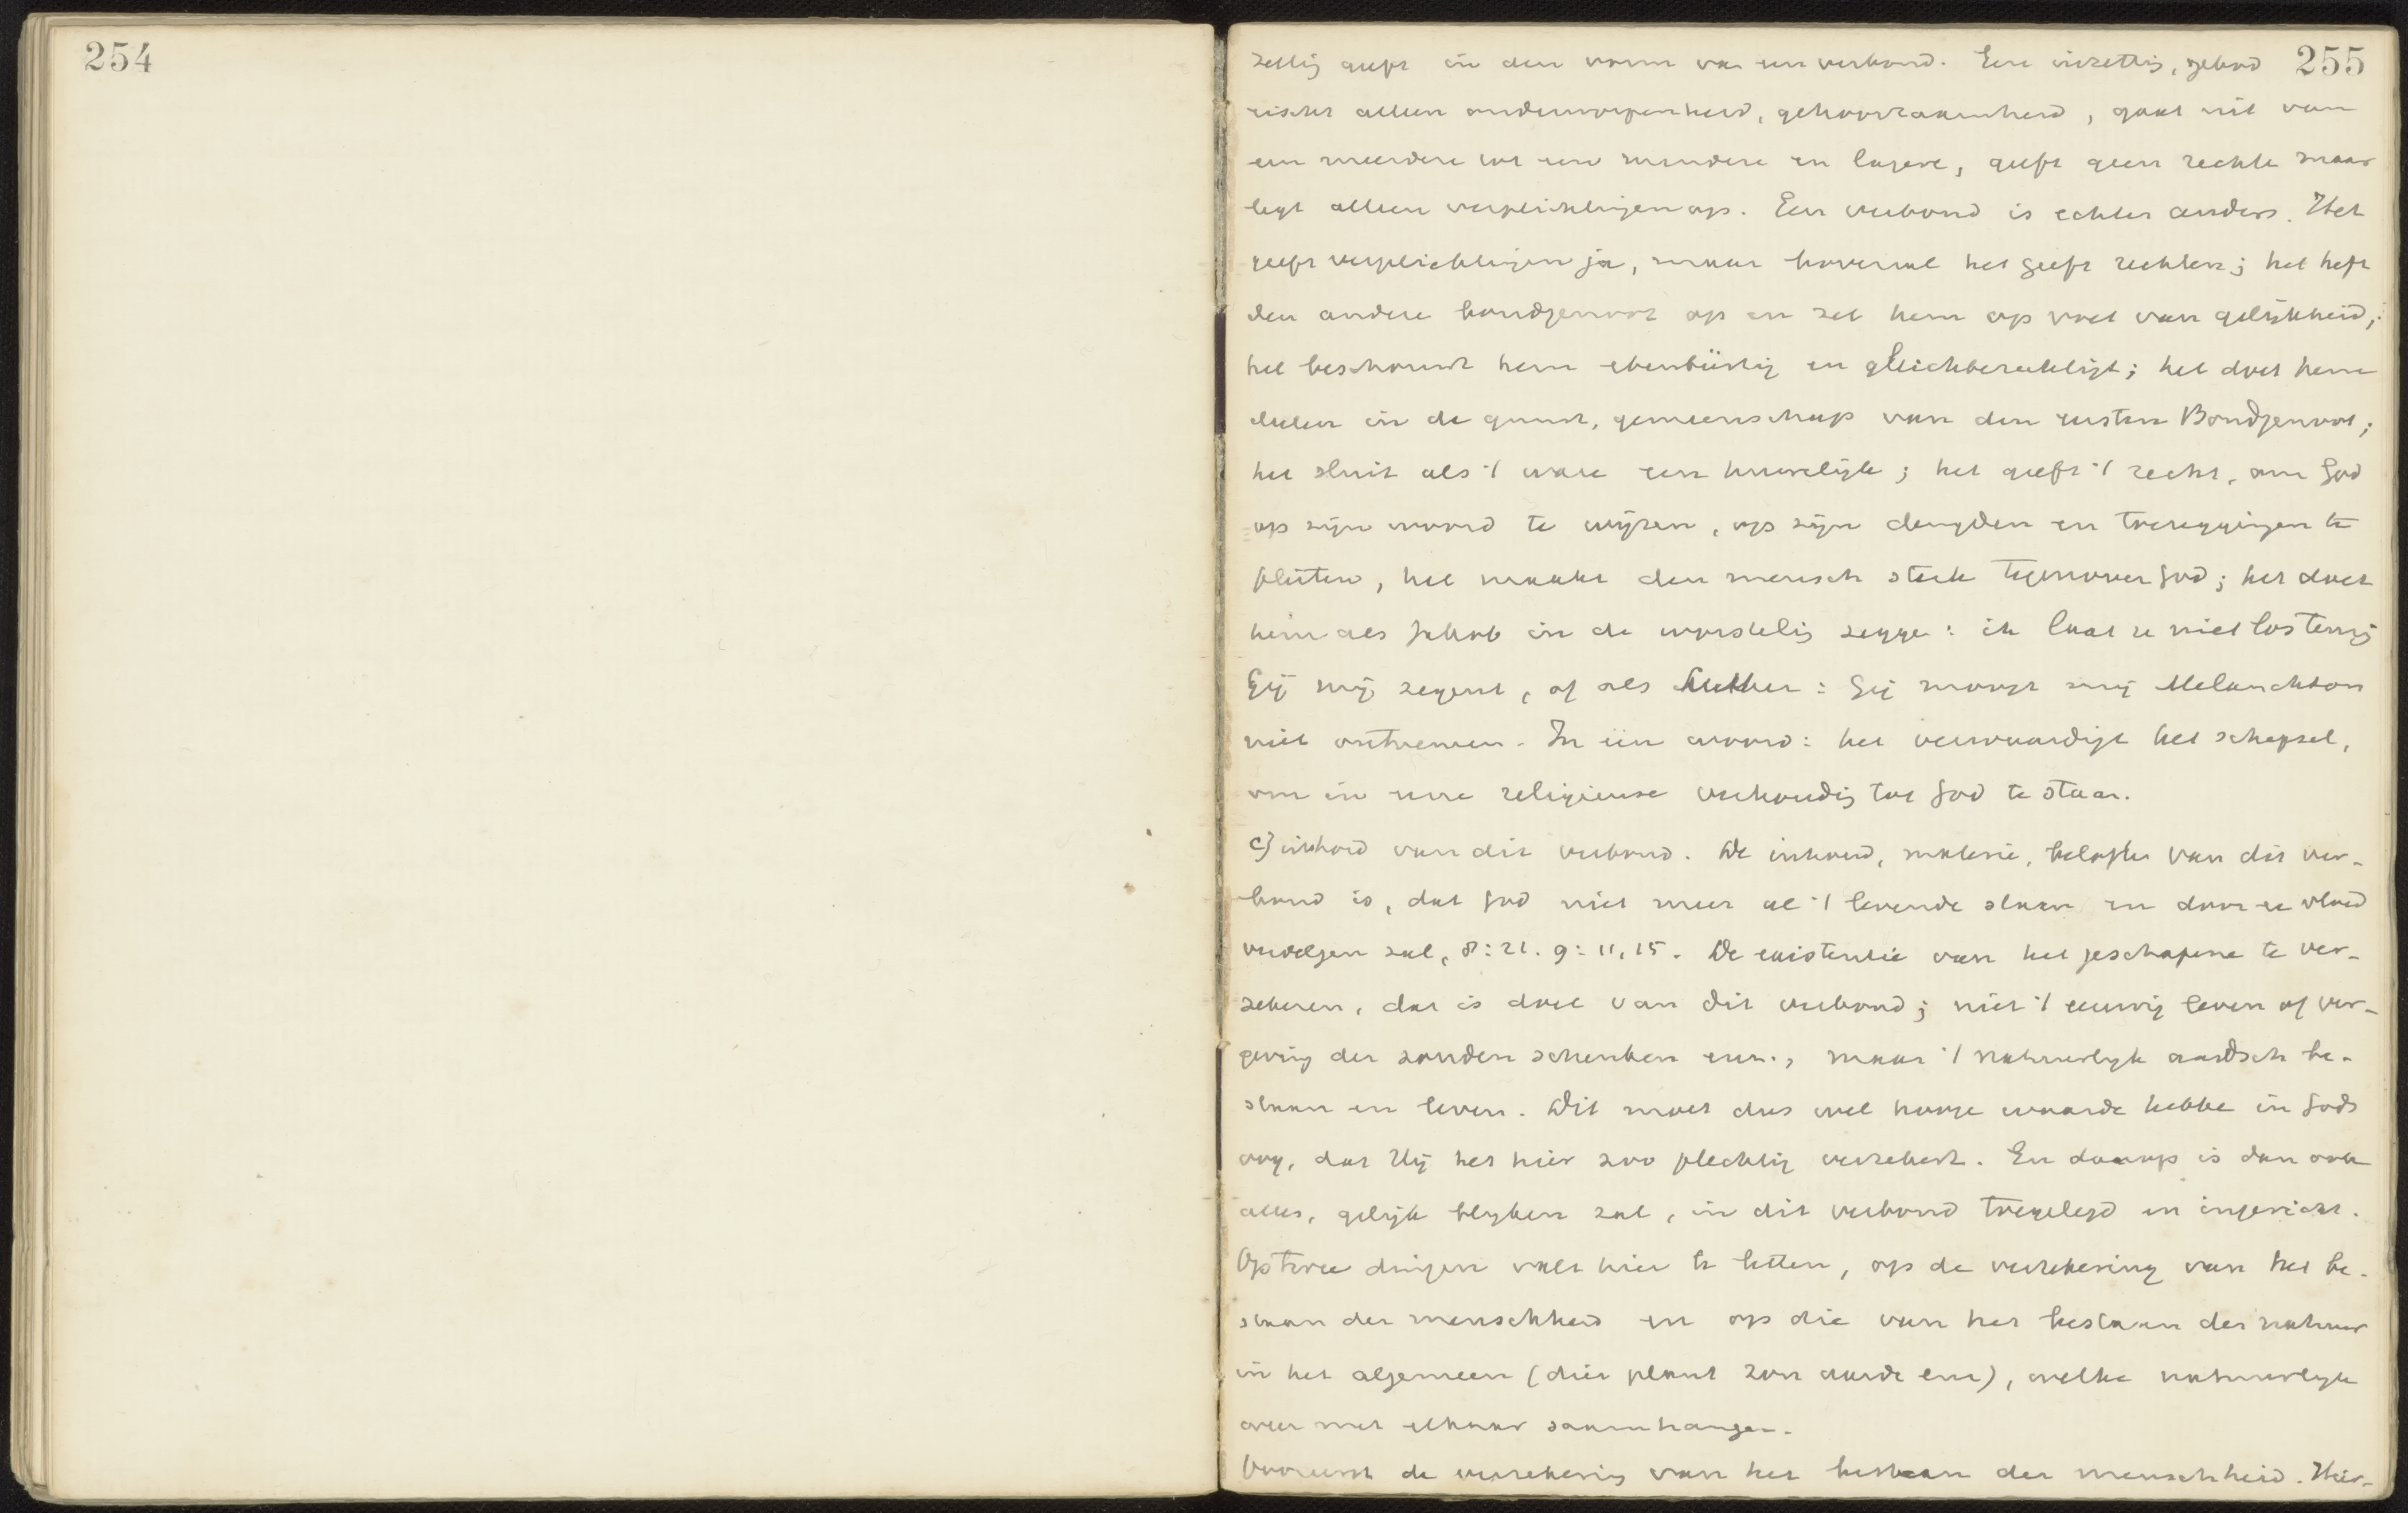 254
255
zettig geeft in den vorm van een verbond. Eene inzettig, gebod
eischt alleen onderworpenheid, gehoorzaamheid, gaat uit van
een meerdere tot een mindere en lagere, geeft geen rechte maar
legt alleen verplichtingen op. Een verbond is echter anders. Het
geeft verplichtingen ja, maar bovenal het geeft rechten; het heft
den andere bondgenoot op en zet hem op voet van gelijkheid;
het beschouwt hem ebenbürtig en gleichberechtigt; het doet hem
deelen in de gunst, gemeenschap van den eersten Bondgenoot;
het sluit als 't ware een huwelijk; het geeft 't recht, om God
op zijn woord te wijzen, op zijn deugden en toezeggingen te
pleiten, het maakt den mensch sterk tegenover God; het doet
hem als Jakob in de worstelig zegge: ik laat u niet los tenzij
Gij mij zegent, of als Luther: Gij moogt mij Melanchton
niet ontnemen. In één woord: het verwaardigt het schepsel,
om in eene religieuse verhoudig tot God te staan.
c) inhoud van dit verbond. De inhoud, materie, belofte van dit ver-
bond is, dat God niet meer al 't levende slaan en door een vloed
verdelgen zal, 8:21. 9:11, 15. De existentie van het geschapene te ver-
zekeren, dat is doel van dit verbond; niet 't eeuwig leven of ver-
geving der zonden schenken enz., maar 't natuurlijk aardsch be-
staan en leven. Dit moet dus wel hooge waarde hebbe in Gods
oog, dat Hij het hier zoo plechtig verzekert. En daarop is dan ook
alles, gelijk blijken zal, in dit verbond toegelegd en ingericht.
Op twee dingen valt hier te letten, op de verzekering van het be-
staan der menschheid en op die van het bestaan der natuur
in het algemeen (dier plant zon aarde enz), welke natuurlijk
weer met elkaar saamhangen.
Vooreerst de verzekerig van het bestaan der menschheid. Hier-